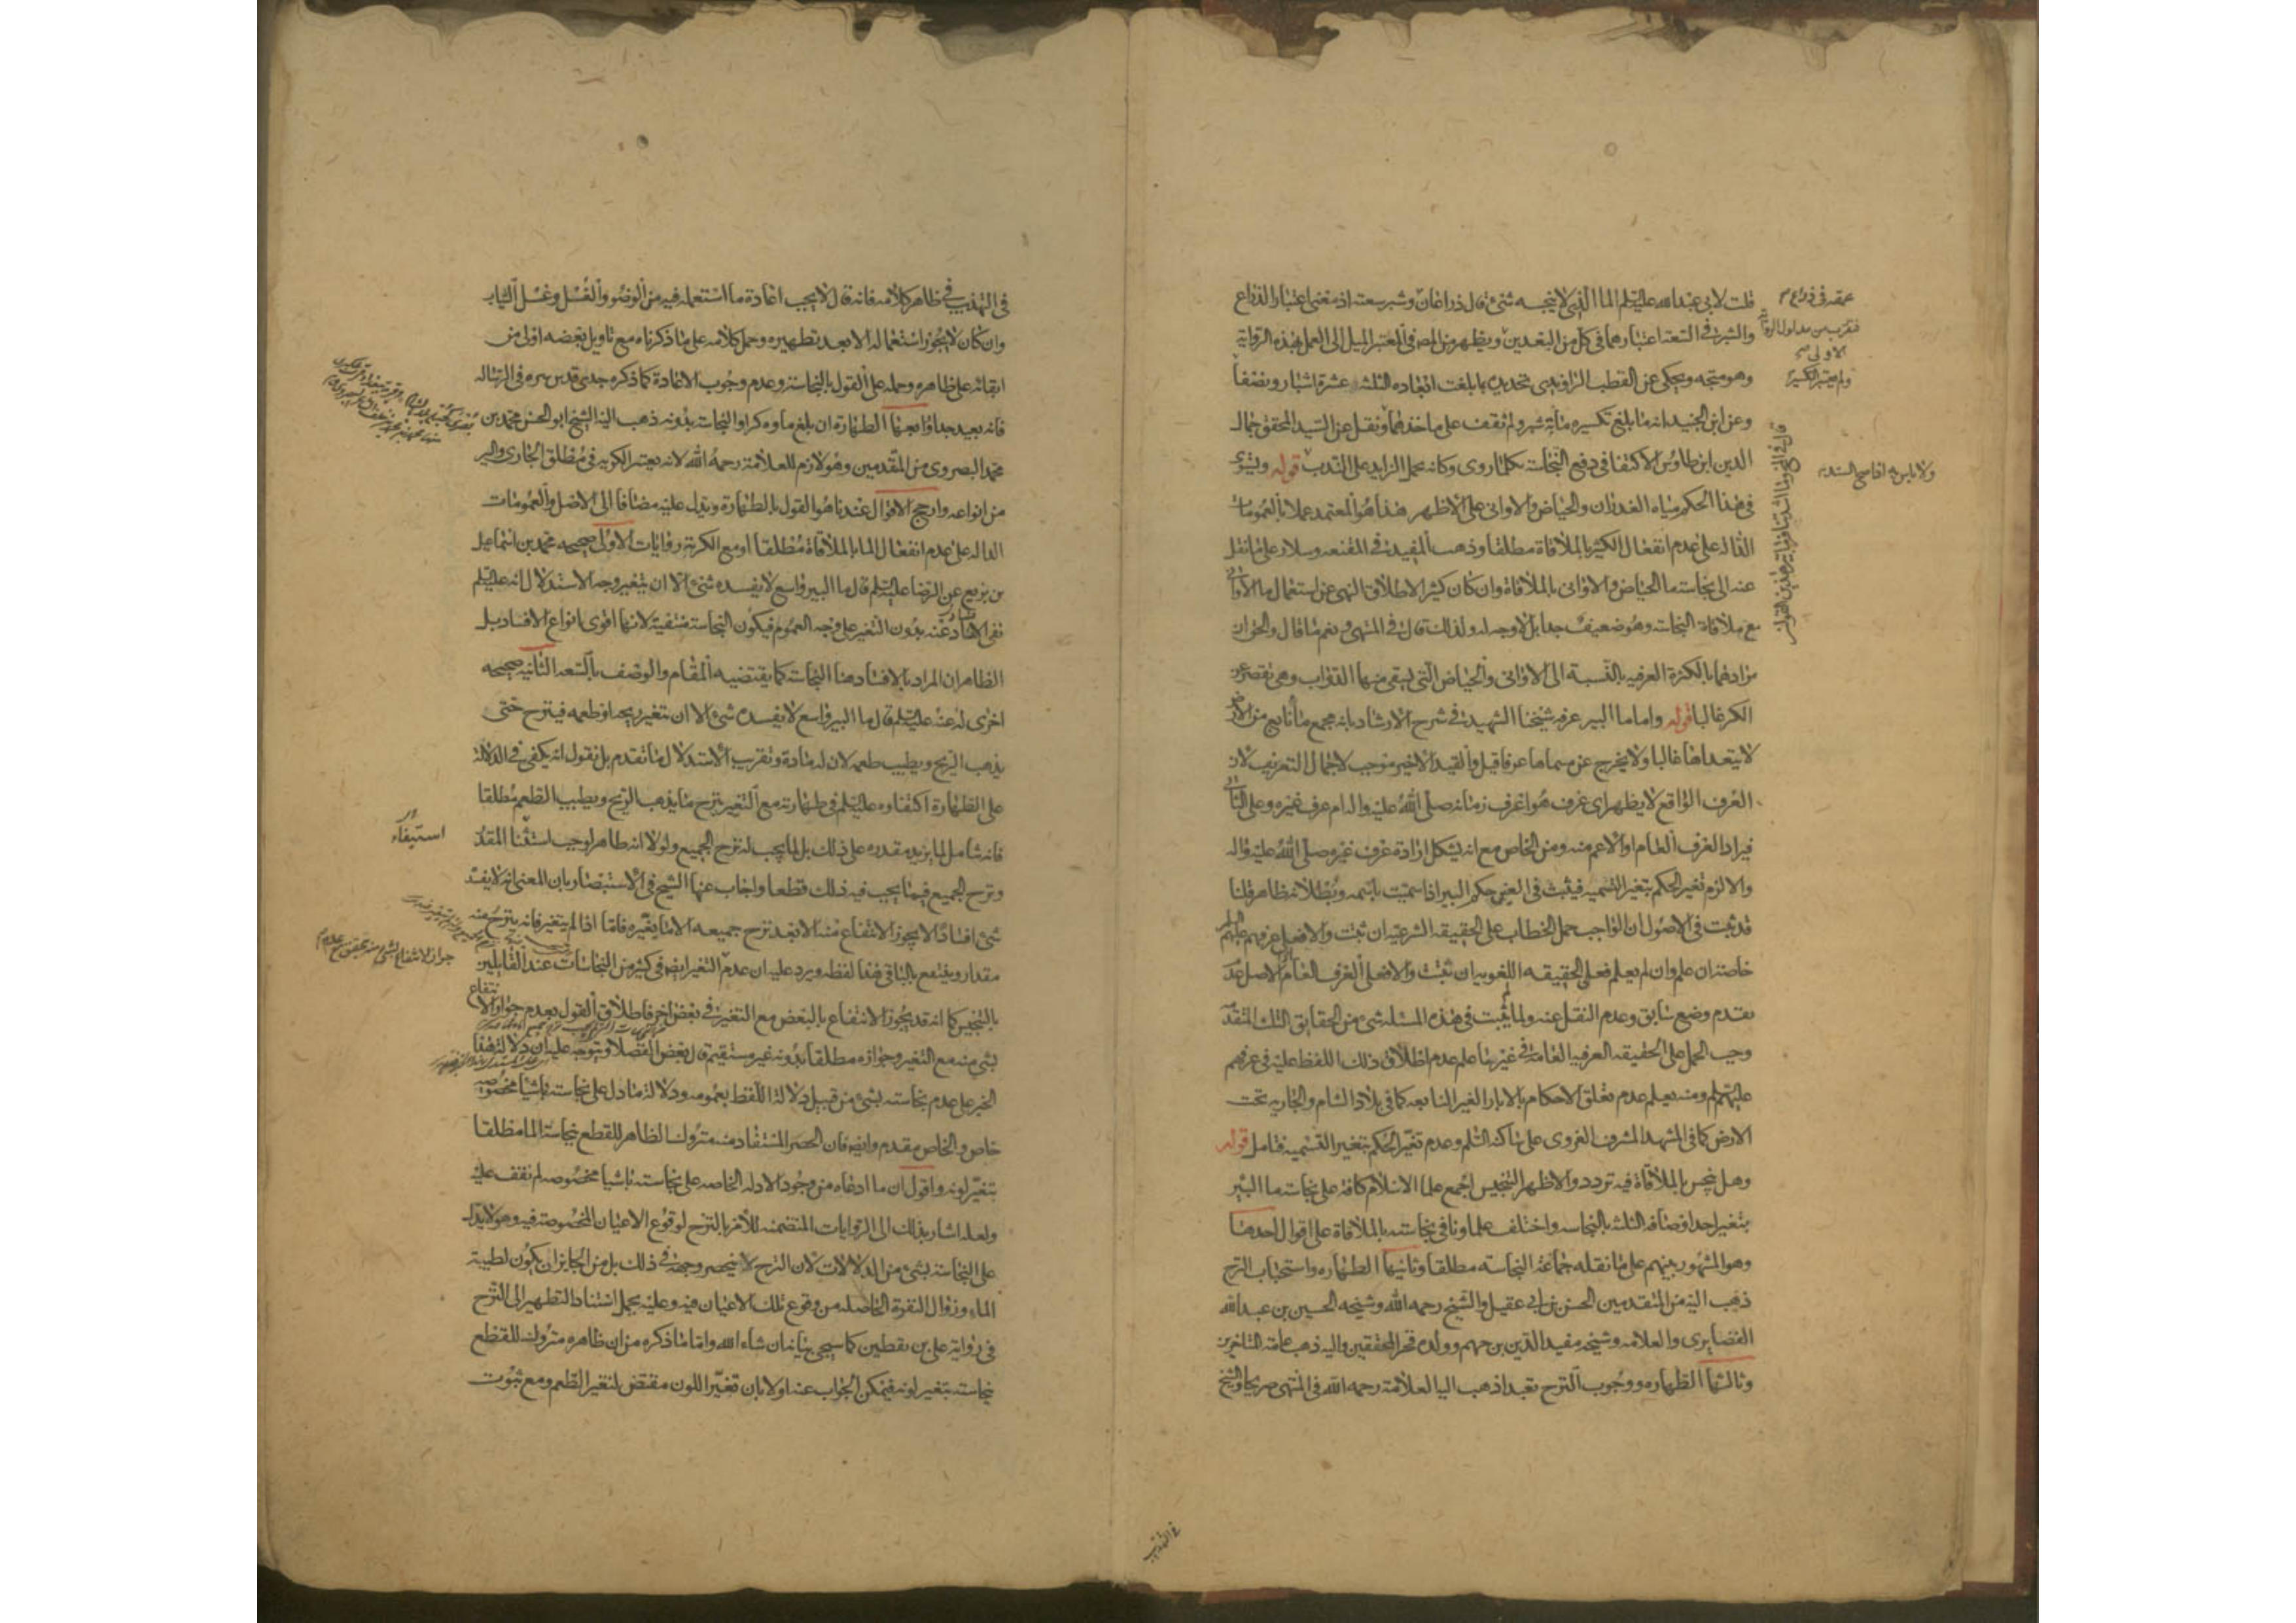 قلت لابى عبد الله عليه السلم الماء الذى لا ينجسه شئ قال ذراعان وشبر سعته اذ معنى اعتبار الذراع
والشبر فى السعة اعتبارهما فى كل من البعدين ويظهر من المص فى المعتبر الميل الى العمل بهذه الرواية
وهو متجه ويحكى عن القطب الراوندى تحديده بما بلغت ابعاده الثلثه عشرة اشبار ونصفا
وعن ابن الجنيد انه ما بلغ تكسيره مائة شبر ولم نقف على ماخذهما ونقل عن السيد المحقق جمال
الدين ابن طاوس الاكتفا فى دفع النجاسة بكلما روى وكانه يحمل الزايد على الندب قوله ويستوى
فى هذا الحكم مياه الغدران والحياض والاوانى على الاظهر هذا هو المعتمد عملا بالعمومات
الدالة على عدم انفعال الكثير بالملاقاة مطلقا وذهب المفيد فى المقنعه وسلار على ما نقل
عنه الى نجاسة ما الحياض والاوانى بالملاقاة وان كان كثيرا لاطلاق النهى عن استعمال ما الاوانى
مع ملاقاة النجاسة وهو ضعيف جدا بل لا وجه له ولذلك قال فى المنتهى ونعم ما قال والحق ان
مرادهما بالكثرة العرفيه بالنسبة الى الاوانى والحياض التى يسقى منها الدواب وهى تقصر عن
الكر غالبا قوله واما ما البير عرفه شيخنا الشهيد فى شرح الارشاد بانه مجمع ما نابع من الارض
لا يتعداها غالبا ولا يخرج عن مسماها عرفا قيل والقيد الاخير موجب لاجمال التعريف لان
العرف الواقع لا يظهر اى عرف هو اعرف زمانه صلى الله عليه واله ام عرف غيره وعلى الثانى
فيراد العرف العام او الاعم منه ومن الخاص مع انه يشكل ارادة عرف غيره صلى الله عليه واله
والا لزم تغير الحكم بتغير التسميه فيثبت فى العين حكم البير اذا سميت باسمه وبطلانه ظاهر قلنا
قد ثبت فى الاصول ان الواجب حمل الخطاب على الحقيقه الشرعيه ان ثبت والا فعلى عرفهم عليهم السلم
خاصة ان علم وان لم يعلم فعلى الحقيقه اللغويه ان ثبتت والا فعلى العرف العام لاصل عدم
تقدم وضع سابق وعدم النقل عنه ولما لم يثبت فى هذه المسئله شئ من الحقايق الثلث المتقدمة
وجب الحمل على الحقيقه العرفيه العامة فى غير ما علم عدم اطلاق ذلك اللفظ عليه فى عرفهم
عليهم السلم ومنه يعلم عدم تعلق الاحكام بالابار الغير النابعه كما فى بلاد الشام والجاريه تحت
الارض كما فى المشهد المشرف الغروى على ساكنه السلم وعدم تغير الحكم بتغير التسميه فتامل قوله
وهل ينجس بالملاقاة فيه تردد والاظهر التنجيس اجمع علما الاسلام كافة على نجاسة ما البئر
بتغير احد اوصافه الثلثة بالنجاسه واختلف علماونا فى نجاسته بالملاقاة على اقوال احدها
وهو المشهور بينهم على ما نقله جماعة النجاسه مطلقا وثانيها الطهاره واستحباب النزح
ذهب اليه من المتقدمين الحسن بن ابى عقيل والشيخ رحمه الله وشيخه الحسين بن عبد الله
الغضايرى والعلامه وشيخه مفيد الدين بن جهم وولده فخر المحققين واليه ذهب عامة المتاخرين
وثالثها الطهاره ووجوب النزح تعبدا ذهب اليه العلامة رحمه الله فى المنتهى صريحا والشيخ
عمقه فى ذراع
فتقرب من مدلول الرواية
الاولى
ولم يعتبر التكسير
ولا باس به افا صح السند
قال فى الذكرى
فى التهذيب
فى التهذيب فى ظاهر كلامه فانه قال لا يجب اعادة ما استعمله فيه من الوضو والغسل وغسل الثياب
وان كان لا يجوز استعماله الا بعد تطهيره وحمل كلامه على ما ذكرناه مع تاويل بعضه اولى من
ابقائه على ظاهره وحمله على القول بالنجاسة وعدم وجوب الاعادة كما ذكره جدى قدس سره فى الرساله
فانه بعيد جدا ورابعها الطهارة ان بلغ ماوه كرا والنجاسة بدونه ذهب اليه الشيخ ابو الحسن محمد بن
محمد البصروى من المتقدمين وهو لازم للعلامة رحمه الله لانه يعتبر الكرية فى مطلق الجارى والبير
من انواعه وارجح الاقوال عندنا هو القول بالطهارة ويدل عليه مضافا الى الاصل والعمومات
الداله على عدم انفعال الماء بالملاقاة مطلقا او مع الكرية روايات الاولى صحيحه محمد بن اسماعيل
بن بزيع عن الرضا عليه السلم قال ما البير واسع لا يفسده شئ الا ان يتغير وجه الاستدلال انه عليه السلم
نفى الافساد عنه بدون التغير على وجه العموم فيكون النجاسة منتفية لانها اقوى انواع الافساد بل
الظاهر ان المراد بالافساد هنا النجاسة كما يقتضيه المقام والوصف بالسعة الثانيه صحيحه
اخرى له عنه عليه السلم قال ما البير واسع لا يفسده شئ الا ان يتغير ريحه او طعمه فينزح حتى
يذهب الريح ويطيب طعمه لان له مادة وتقريب الاستدلال ما تقدم بل نقول انه يكفى فى الدلالة
على الطهارة اكتفاوه عليه السلم فى طهارته مع التغير بنزح ما يذهب الريح ويطيب الطعم مطلقا
فانه شامل لما يزيد مقدره على ذلك بل لما يجب له نزح الجميع ولولا انه طاهر لوجب استثنا المقدر
ونزح الجميع فيما يجب فيه ذلك قطعا واجاب عنها الشيخ فى الاستبصار بان المعنى انه لا يفسده
شئ افسادا لا يجوز الانتفاع منه الا بعد نزح جميعه الا ما يغيره فاما اذا لم يتغير فانه ينزح منه
مقدار وينتفع بالباقى هذا لفظه ويرد عليه ان عدم التغير ايضا فى كثير من النجاسات عند القايلين
بالتنجيس كما انه قد يجوز الانتفاع بالبعض مع التغير فى بعض اخر فاطلاق القول بعدم جواز الانتفاع
بشئ منه مع التغير وجوازه مطلقا بدونه غير مستقيم قال بعض الفضلا ويتوجه عليه ان دلالة هذا
الخبر على عدم نجاسته بشئ من قبيل دلالة اللفظ بعمومه ودلالة ما دل على نجاسته باشيا مخصوصه
خاص والخاص مقدم وايضا فان الحصر المستفاد منه متروك الظاهر للقطع بنجاسة الما مطلقا
بتغير لونه واقول ان ما ادعاه من وجود الادله الخاصه على نجاسته باشيا مخصوصه لم نقف عليه
ولعله اشار بذلك الى الروايات المتضمنه للامر بالنزح لوقوع الاعيان المخصوصة فيه وهو لا يدل
على النجاسة بشئ من الدلالات لان النزح لا ينحصر وجهه فى ذلك بل من الجايز ان يكون لطيبة
الماء وزوال النفرة الحاصله من وقوع تلك الاعيان فيه وعليه يحمل استناد التطهير الى النزح
فى رواية على بن يقطين كما سيجى بيانه ان شاء الله واما ما ذكره من ان ظاهره متروك للقطع
نجاسته بتغير لونه فيمكن الجواب عنه اولا بان تغير اللون مقتض لتغير الطعم ومع ثبوت
استيفاء
جواز الانتفاع بشئ منه يتحقق مع عدم